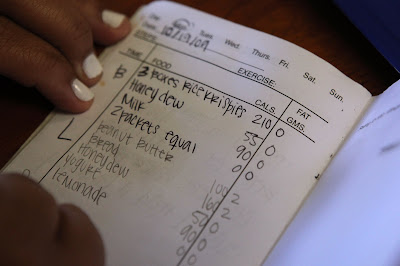 Date: Mon. Tues. Wed. Thurs. Fri. Sat. Sun.
10/19/09
EXERCISE:
TIME FOOD CALS. FAT GMS.
B 3 boxes rice krispies 210 0
Honeydew 55 0
Milk 90 0
2 packets equal 0 0
L peanut butter 100 2
Bread 160 2
Honeydew 50 0
yogurt 90 0
lemonade 0 0